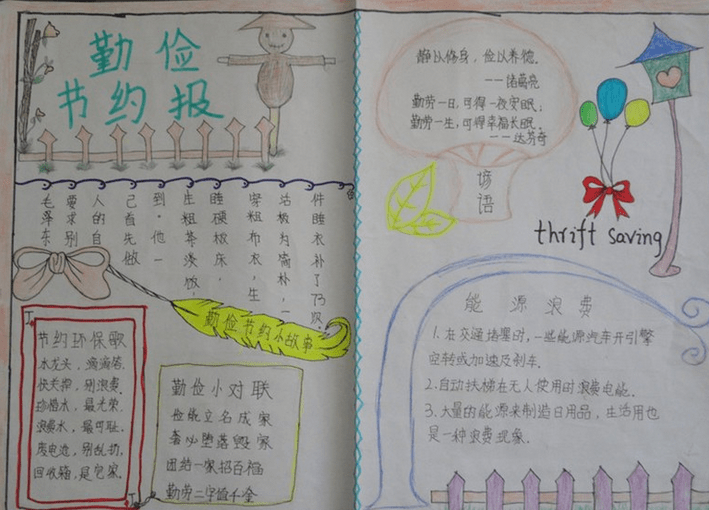 勤俭
节约报
毛泽东
要求别
人的自
己首先做
到。他一
生粗茶淡饭，
睡硬板床，
穿粗布衣，生
活极为简朴，一
件睡衣补了73次。
勤俭节约小故事
节约环保歌
水龙头，滴滴答。
快关掉，别浪费。
珍惜水，最光荣。
浪费水，最可耻。
废电池，别乱扔，
回收箱，是它家。
勤俭小对联
俭能立名成家
奢必堕落毁家
团结一家招百福
勤劳二字值千金
静以修身，俭以养德。
——诸葛亮
勤劳一日，可得一夜安眠；
勤劳一生，可得幸福长眠。
——达芬奇
谚语
thrift saving
能源浪费
1.在交通堵塞时，一些能源汽车开引擎
空转或加速及刹车.
2.自动扶梯在无人使用时浪费电能.
3.大量的能源来制造日用品，生活用也
是一种浪费现象.